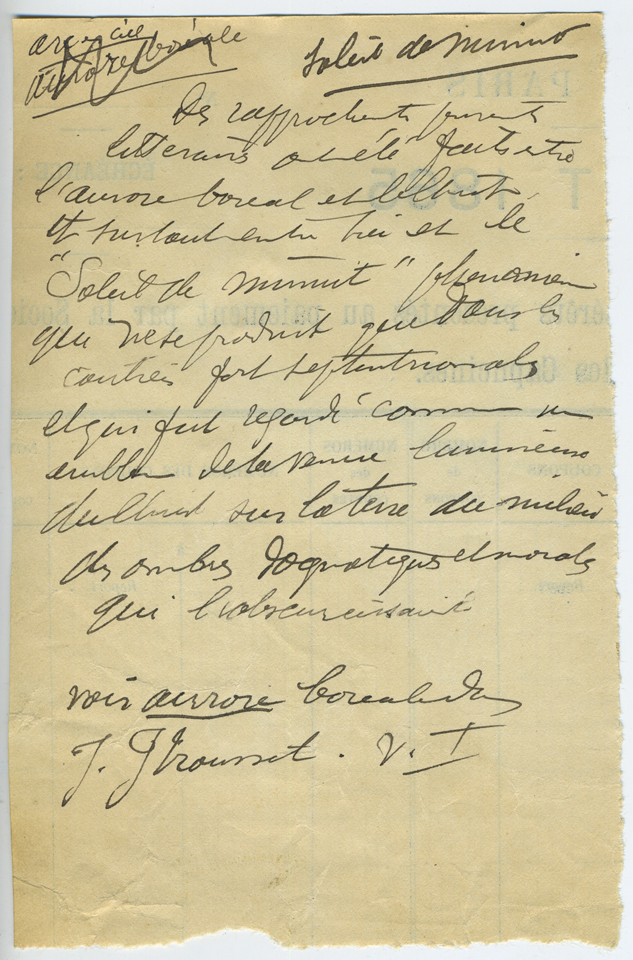 arc en ciel
aurore boréale
Soleil de Minuit
Des rapprochements
litteraires ont été faits entre
l'aurore boreal et
et surtout entre lui et le
"Soleil de minuit" phenomene
qui ne se produit que dans les
contrées fort septentrionales
et qui fut regardé comme un
embleme de la venue lumineuse
du Christ sur la terre du milieu
des ombres dogmatiques et morales
qui l'obscurcissaient
voir aurore boreale dans
J. Trousset. V. I
PARIS
1895
ECHEANCE
au paiement par la Société
des Capucines.
NUMEROS
des
COUPONS